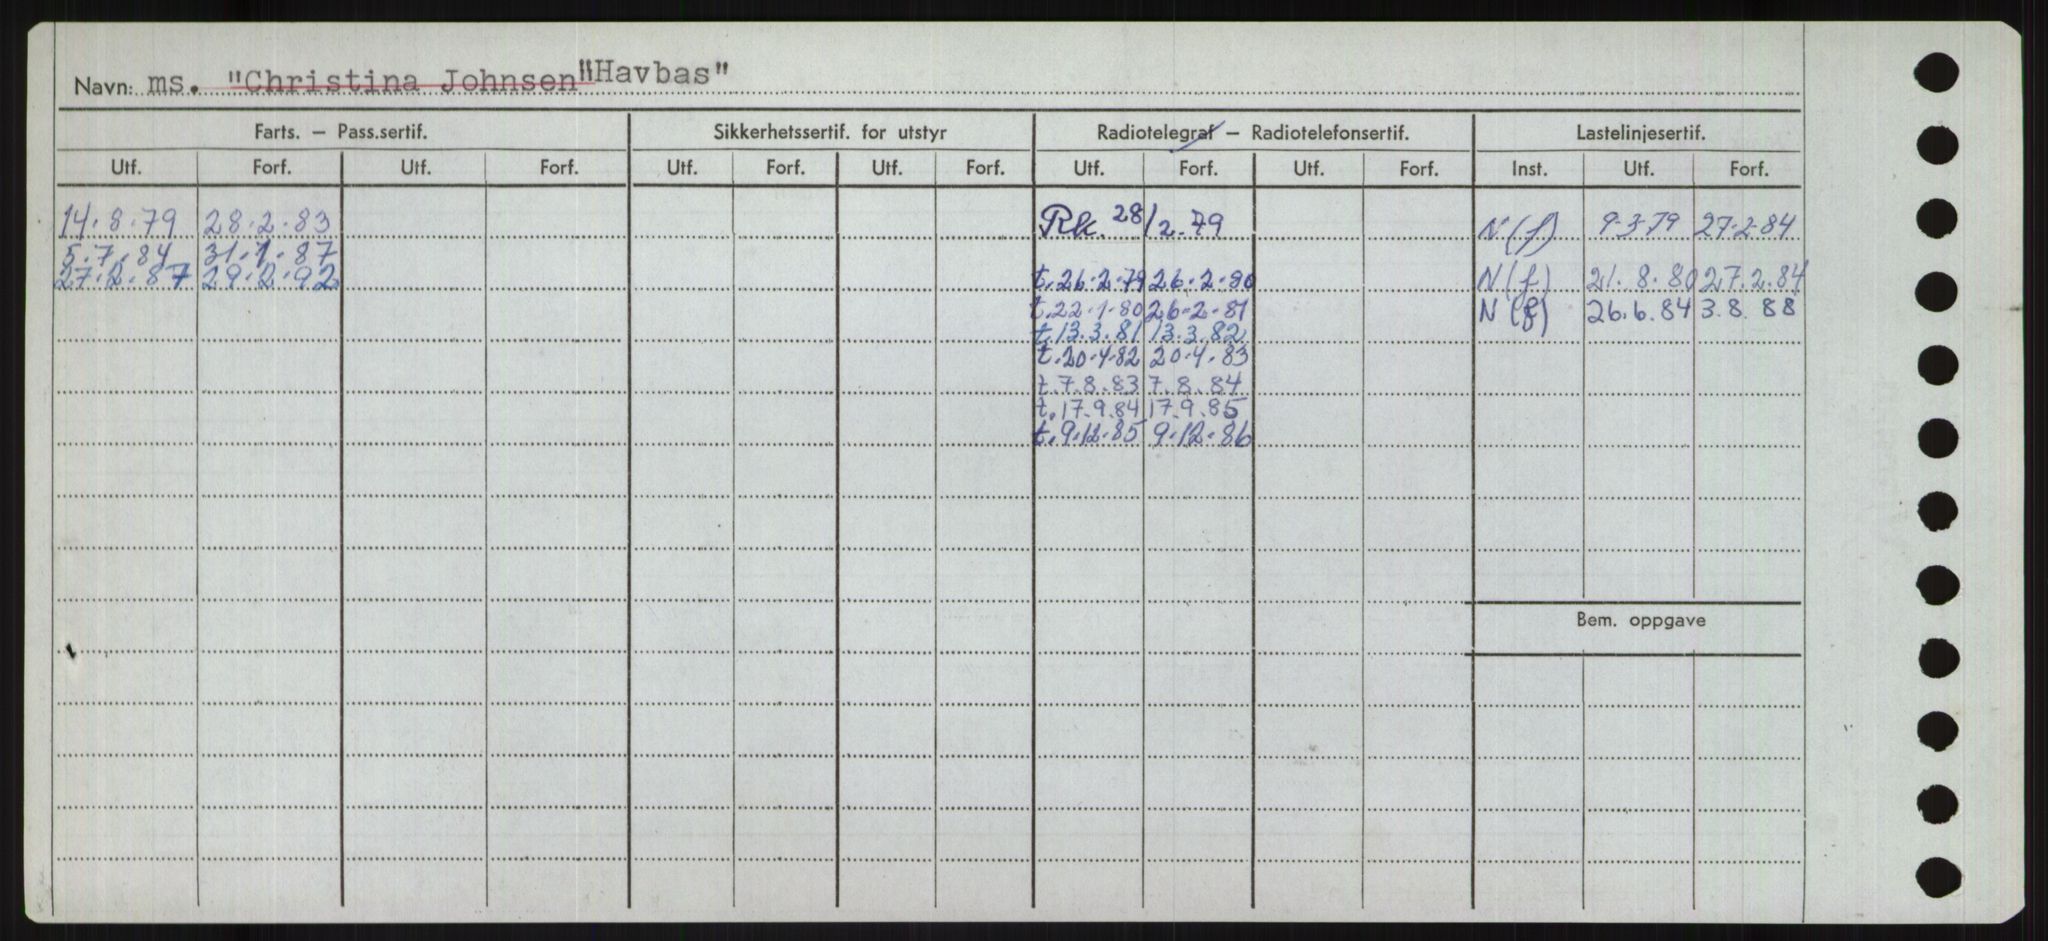 Navn: ms. "Christina Johnsen" "Havbas"
Farts. – Pass.sertif. Sikkerhetssertif. for utstyr Radiotelegraf – Radiotelefonsertif. Lastelinjesertif.
Utf. Forf. Utf. Forf. Utf. Forf. Utf. Forf. Utf. Forf. Utf. Forf. Inst. Utf. Forf.
14.8.79 28.2.83 Rk. 28/2.79 N(f) 9.3.79 27.2.84
5.7.84 31.1.87
27.2.87 29.2.92 t.26.2.79 26.2.80 N(f) 21.8.80 27.2.84
t.22.1.80 26.2.81 N(f) 26.6.84 3.8.88
t.13.3.81 13.3.82
t.20.4.82 20.4.83
t.7.8.83 7.8.84
t.17.9.84 17.9.85
t.9.12.85 9.12.86
Bem. oppgave